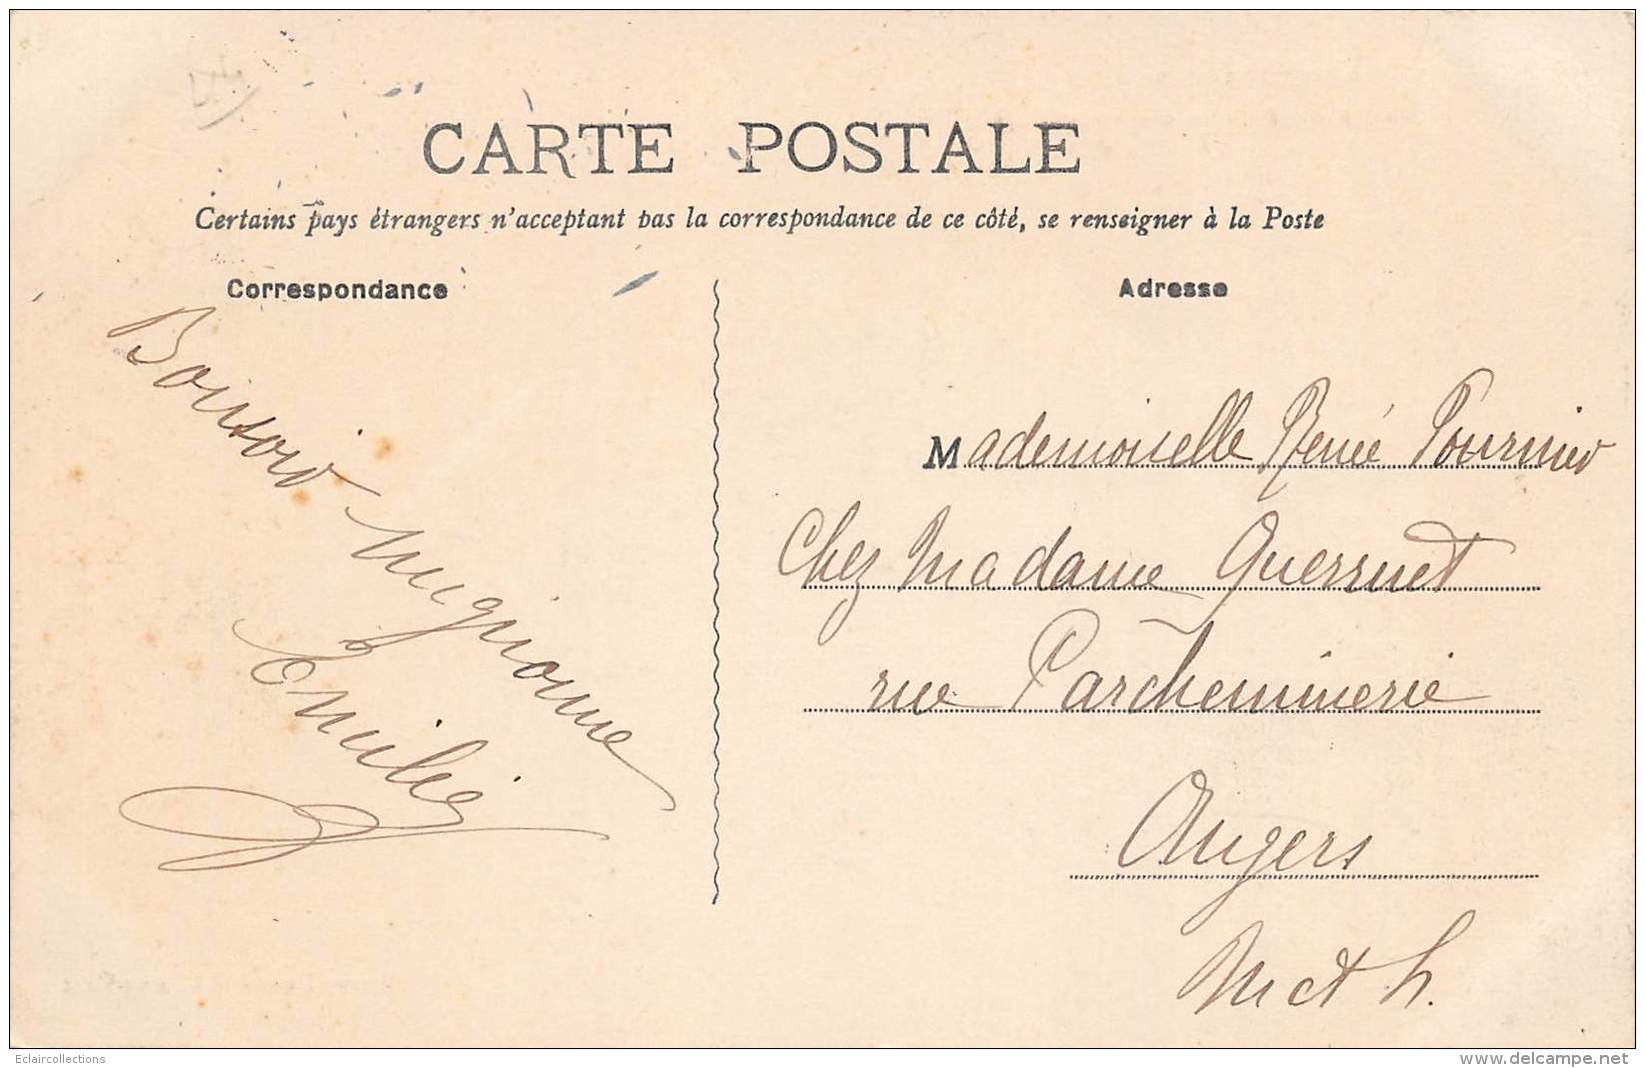 CARTE POSTALE
Certains pays étrangers n'acceptant pas la correspondance de ce côté, se renseigner à la Poste
Correspondance
Bonsoir mignonne
Emilie
Adresse
Mademoiselle Renée Fournier
Chez Madame Guersnet
rue Parcheminerie
Angers
M et L.
Eclaircollections
www.delcampe.net